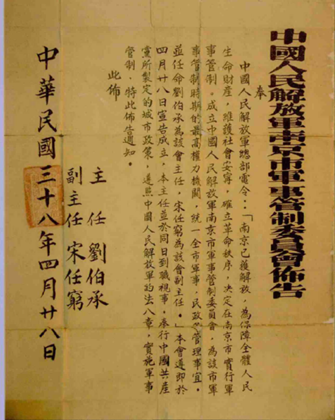 中國人民解放軍南京市軍事管制委員會佈告
奉
中國人民解放軍總部電令：「南京已獲解放，為保障全體人民
生命財產，維護社會安寧，確立革命秩序，決定在南京市實行軍
事管制，成立中國人民解放軍南京市軍事管制委員會，為該市軍
事管制時期的最高權力機關，統一全市軍事，民政等管理事宜。
並任命劉伯承為該會主任，宋任窮為該會副主任。」本會遵即於
四月廿八日宣告成立，本主任並於同日到職視事，奉行中國共產
黨所製定的城市政策，遵照中國人民解放軍約法八章，實施軍事
管制，特此佈告週知。
此佈
主任 劉伯承
副主任 宋任窮
中華民國三十八年四月廿八日